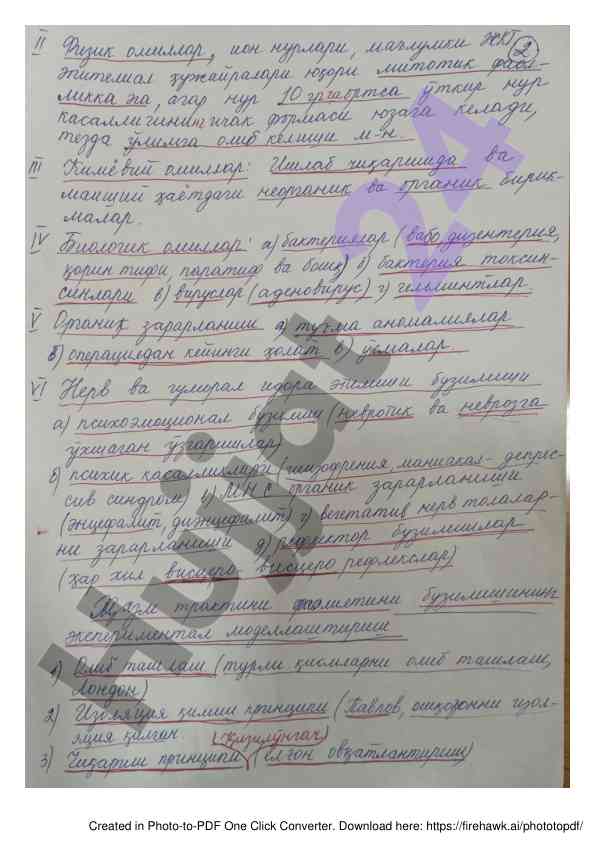 2
II Физик омиллар, ион нурлари, маълумки ЖКТ
эпителиал ҳужайралари юқори митотик фаол-
ликка эга, агар нур 10 грдан ортса ўткир нур
касаллигининг ичак формаси юзага келади,
тезда ўлимга олиб келиши м-н.
III Кимёвий омиллар: Ишлаб чиқаришда ва
маиший ҳаётдаги неорганик ва органик бирик-
малар.
IV Биологик омиллар: а) бактериялар (вабо, дизентерия,
қорин тифи, паратиф ва бошқ) б) бактерия токсин-
синлари в) вируслар (аденовирус) г) гельминтлар
V Органик зарарланиши а) туғма аномалиялар
б) операциядан кейинги ҳолат в) ўсмалар.
VI Нерв ва гуморал идора этилиши бузилиши
а) психоэмоционал бузилиш (невротик ва неврозга
ўхшаган ўзгаришлар)
б) психик касалликлари (шизофрения, маниакал- депрес-
сив синдром) в) МНС органик зарарланиши
(энцефалит, диэнцефалит) г) вегетатив нерв толалар-
ни зарарланиши д) рефлектор бузилишлар
(ҳар хил висцеро- висцеро рефлекслар)
Ҳазм трактини фаолиятини бузилишининг
экспериментал моделлаштириш
1) Олиб ташлаш (турли қисмларни олиб ташлаш,
Лондон)
2) Изоляция қилиш принципи (Павлов, ошқозонни изол-
яция қилган.
3) Чиқариш принципи (ёлғон овқатлантириш)
Hujjat 24
Created in Photo-to-PDF One Click Converter. Download here: https://firehawk.ai/phototopdf/